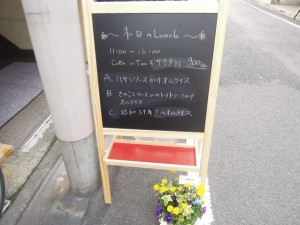 本日のLunch
11:00 〜 16:00
Coffee or Tea & サラダ付 900
A. ハヤシソースがけオムライス
B きのことベーコンのトマトソース
オムライス
C 昭和39年 オムライス